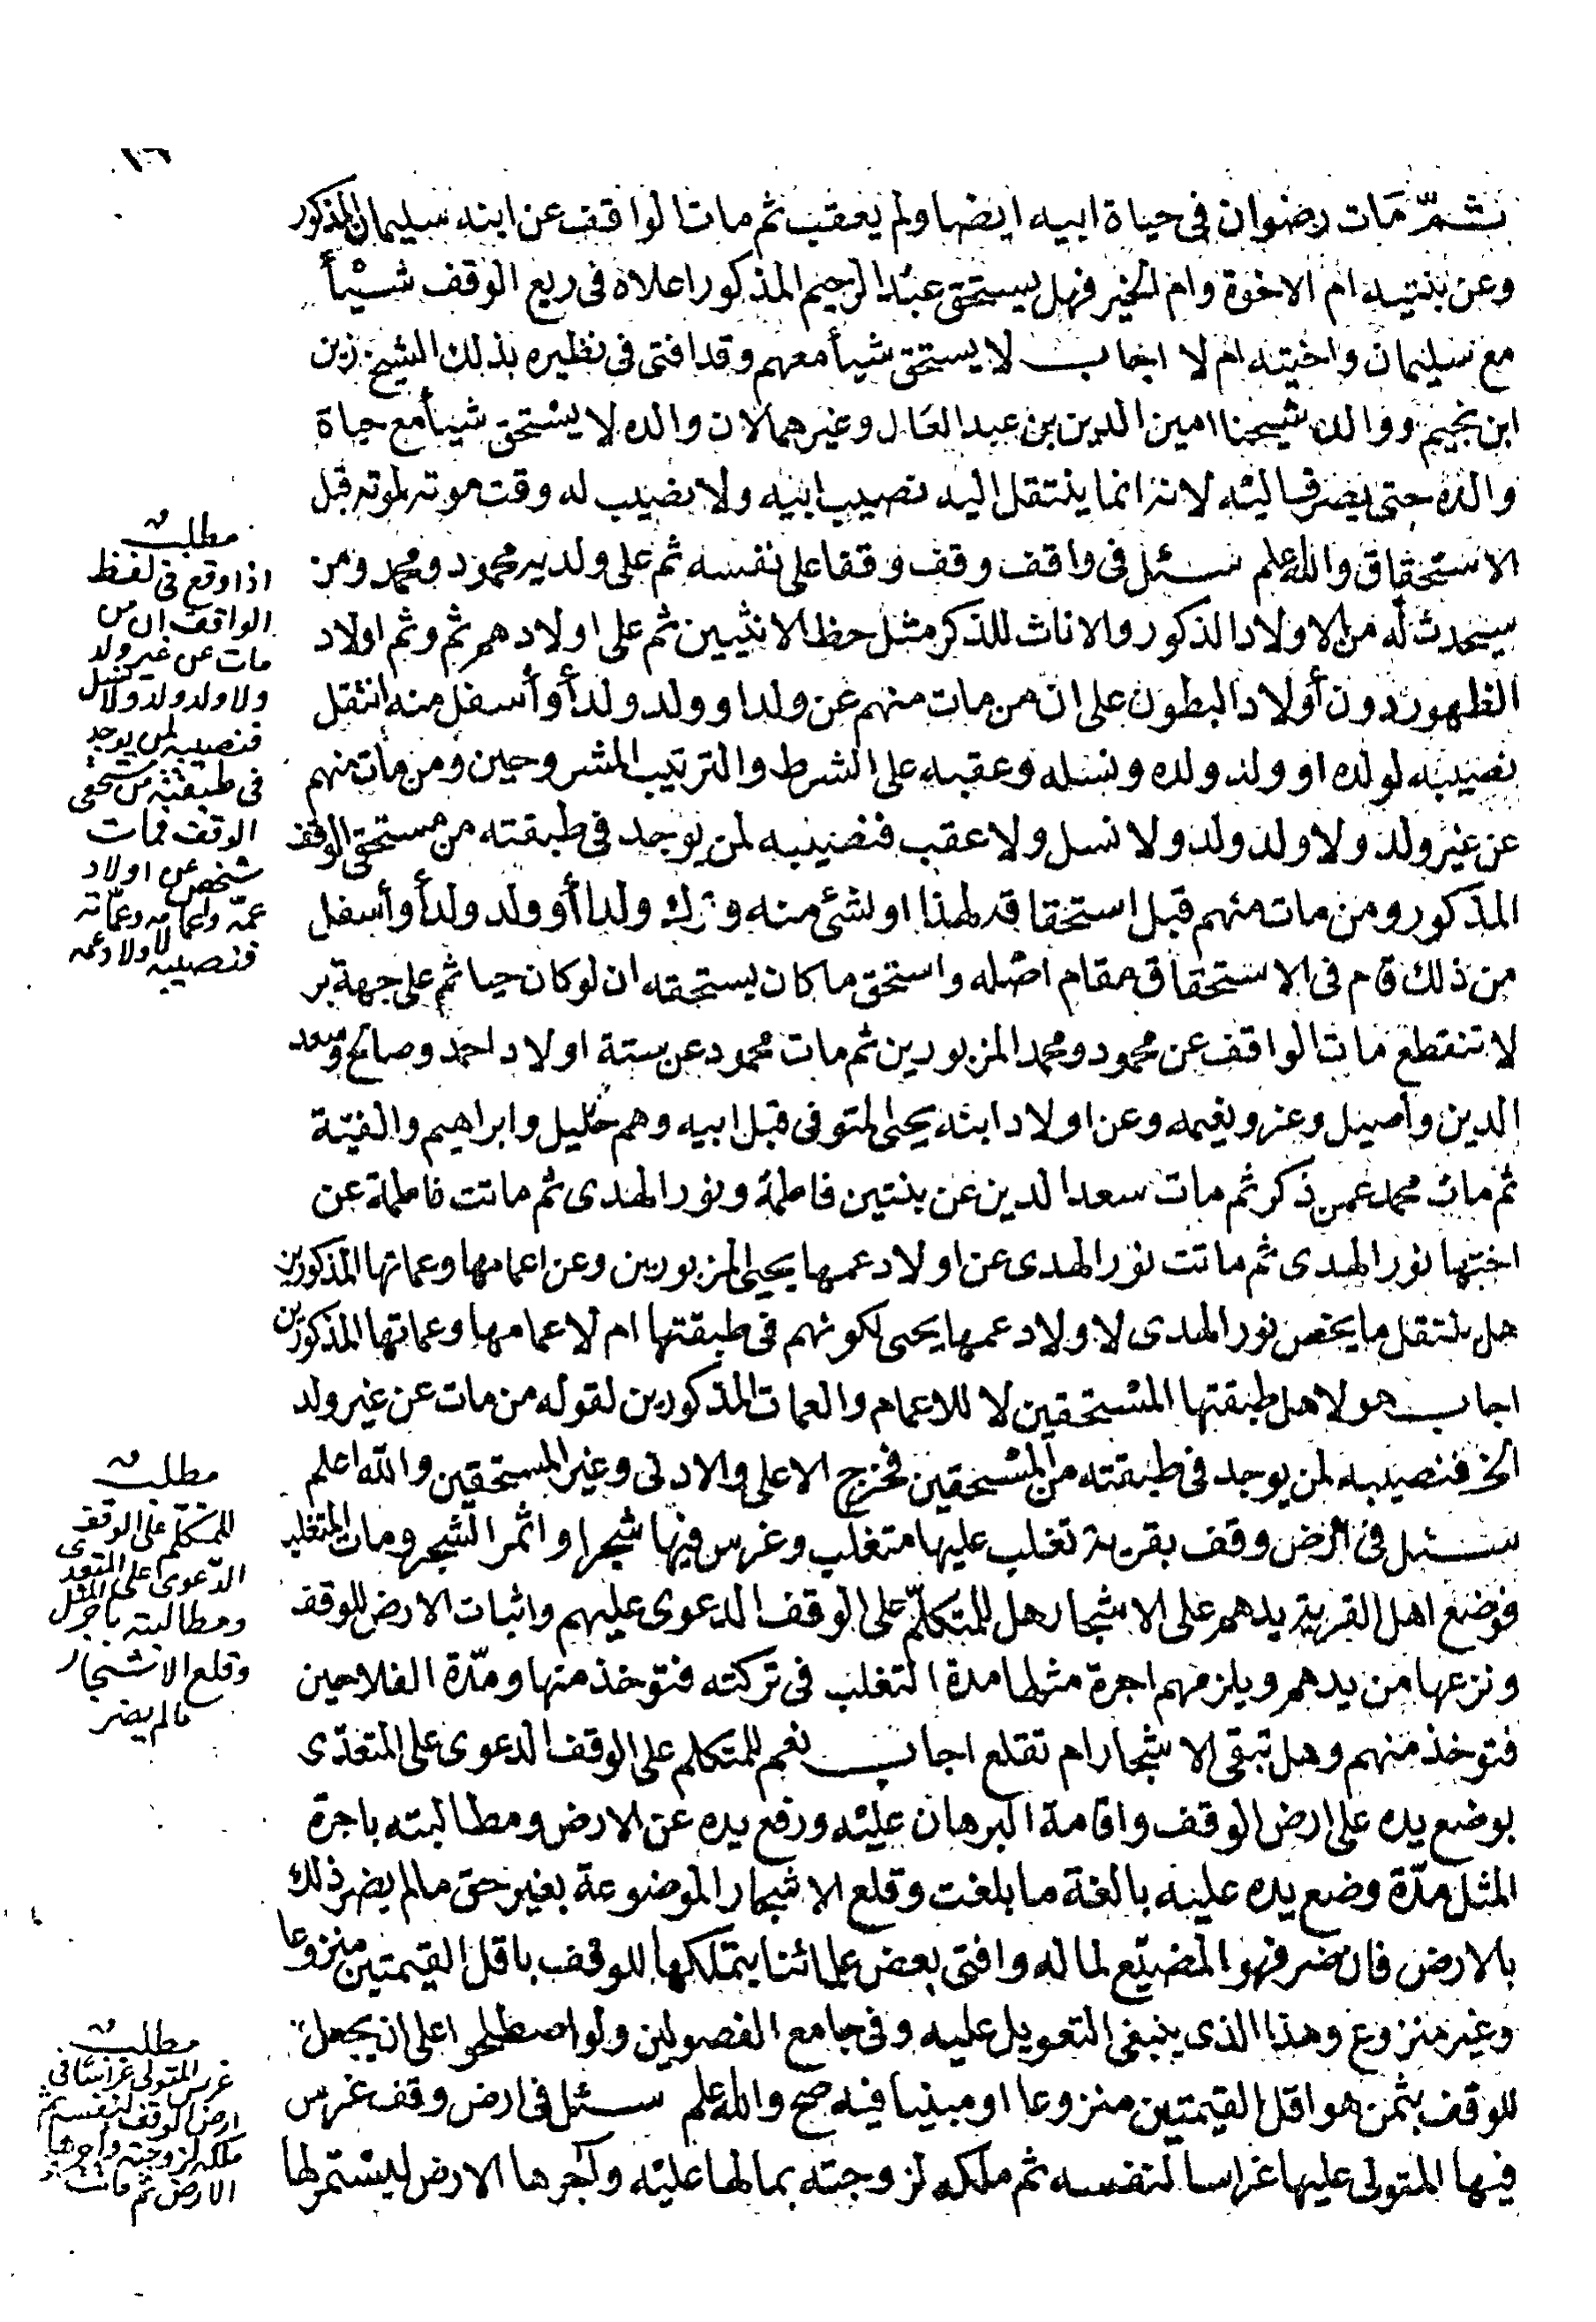 ١٠٦
ثم مات رضوان في حياة ابيه ايضا ولم يعقب ثم مات الواقف عن ابنه سليمان المذكور
وعن بنتيه ام الاخوة وام الخير فهل يستحق عبد الرحيم المذكور اعلاه في ريع الوقف شيأ
مع سليمان واختيه ام لا اجاب لا يستحق شيأ معهم وقد افتى في نظيره بذلك الشيخ زين
ابن نجيم ووالد شيخنا امين الدين بن عبد العال وغيرهما لان والده لا يستحق شيأ مع حياة
والده حتى يصرف اليه لانه انما ينتقل اليه نصيب ابيه ولا نصيب له وقت موته لموته قبل
الاستحقاق والله اعلم سئل في واقف وقف وقفا على نفسه ثم على ولديه محمود ومحمد ومن
سيحدث له من الاولاد الذكور والاناث للذكر مثل حظ الانثيين ثم على اولادهم ثم وثم اولاد
الظهور دون أولاد البطون على ان من مات منهم عن ولد او ولد ولد أو أسفل منه انتقل
نصيبه لولده او ولد ولده ونسله وعقبه على الشرط والترتيب المشروحين ومن مات منهم
عن غير ولد ولا ولد ولد ولا نسل ولا عقب فنصيبه لمن يوجد في طبقته من مستحقي الوقف
المذكور ومن مات منهم قبل استحقاقه لهذا او لشئ منه وترك ولدا أو ولد ولد أو أسفل
من ذلك قام في الاستحقاق مقام اصله واستحق ما كان يستحقه ان لو كان حيا ثم على جهة بر
لا تنقطع مات الواقف عن محمود ومحمد المزبورين ثم مات محمود عن ستة اولاد احمد وصالح وسعد
الدين واصيل وعز ونعيمه وعن اولاد ابنه يحيى المتوفى قبل ابيه وهم خليل وابراهيم والفية
ثم مات محمد عمن ذكر ثم مات سعد الدين عن بنتين فاطمة ونور الهدى ثم ماتت فاطمة عن
اختها نور الهدى ثم ماتت نور الهدى عن اولاد عمها يحيى المزبورين وعن اعمامها وعماتها المذكورين
هل ينتقل ما يخص نور الهدى لاولاد عمها يحيى لكونهم في طبقتها ام لاعمامها وعماتها المذكورين
اجاب هو لاهل طبقتها المستحقين لا للاعمام والعمات المذكورين لقوله من مات عن غير ولد
الخ فنصيبه لمن يوجد في طبقته من المستحقين فخرج الاعلى والادنى وغير المستحقين والله اعلم
سئل في أرض وقف بقرية تغلب عليها متغلب وغرس فيها شجرا واثمر الشجر ومات المتغلب
فوضع اهل القرية يدهم على الاشجار هل للمتكلم على الوقف الدعوى عليهم واثبات الارض للوقف
ونزعها من يدهم ويلزمهم اجرة مثلها مدة التغلب في تركته فتوخذ منها ومدة الفلاحين
فتوخذ منهم وهل تبقى الاشجار ام تقلع اجاب نعم للمتكلم على الوقف الدعوى على المتعدى
بوضع يده على ارض الوقف واقامة البرهان عليه ورفع يده عن الارض ومطالبته باجرة
المثل مدة وضع يده عليه بالغة ما بلغت وقلع الاشجار الموضوعة بغير حق ما لم يضر ذلك
بالارض فان ضر فهو المضيع لماله وافتى بعض علمائنا بتملكها للوقف باقل القيمتين منزوعا
وغير منزوع وهذا الذى ينبغى التعويل عليه وفى جامع الفصولين ولو اصطلحوا على ان يجعل
للوقف بثمن هو اقل القيمتين منزوعا او مبنيا فيه صح والله اعلم سئل في ارض وقف غرس
فيها المتولى عليها غراسا لنفسه ثم ملكه لزوجته بمالها عليه وآجرها الارض ليستمر لها
مطلب
اذا وقع في لفظ
الواقف ان من
مات عن غير ولد
ولا ولد ولد ولا نسل
فنصيبه لمن يوجد
في طبقته من مستحقى
الوقف فمات
شخص عن اولاد
عمه واعمامه وعماته
فنصيبه لاولاد عمه
مطلب
للمتكلم على الوقف
الدعوى على المتعدى
ومطالبته باجر المثل
وقلع الاشجار
ما لم يضر
مطلب
غرس المتولى غراسا فى
ارض الوقف لنفسه ثم
ملكه لزوجته وآجرها
الارض ثم مات